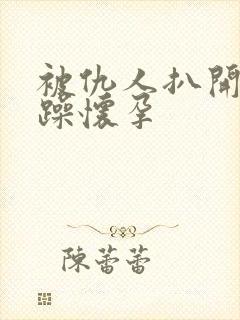 被仇人扒開
躁懷孕
陳蕾蕾